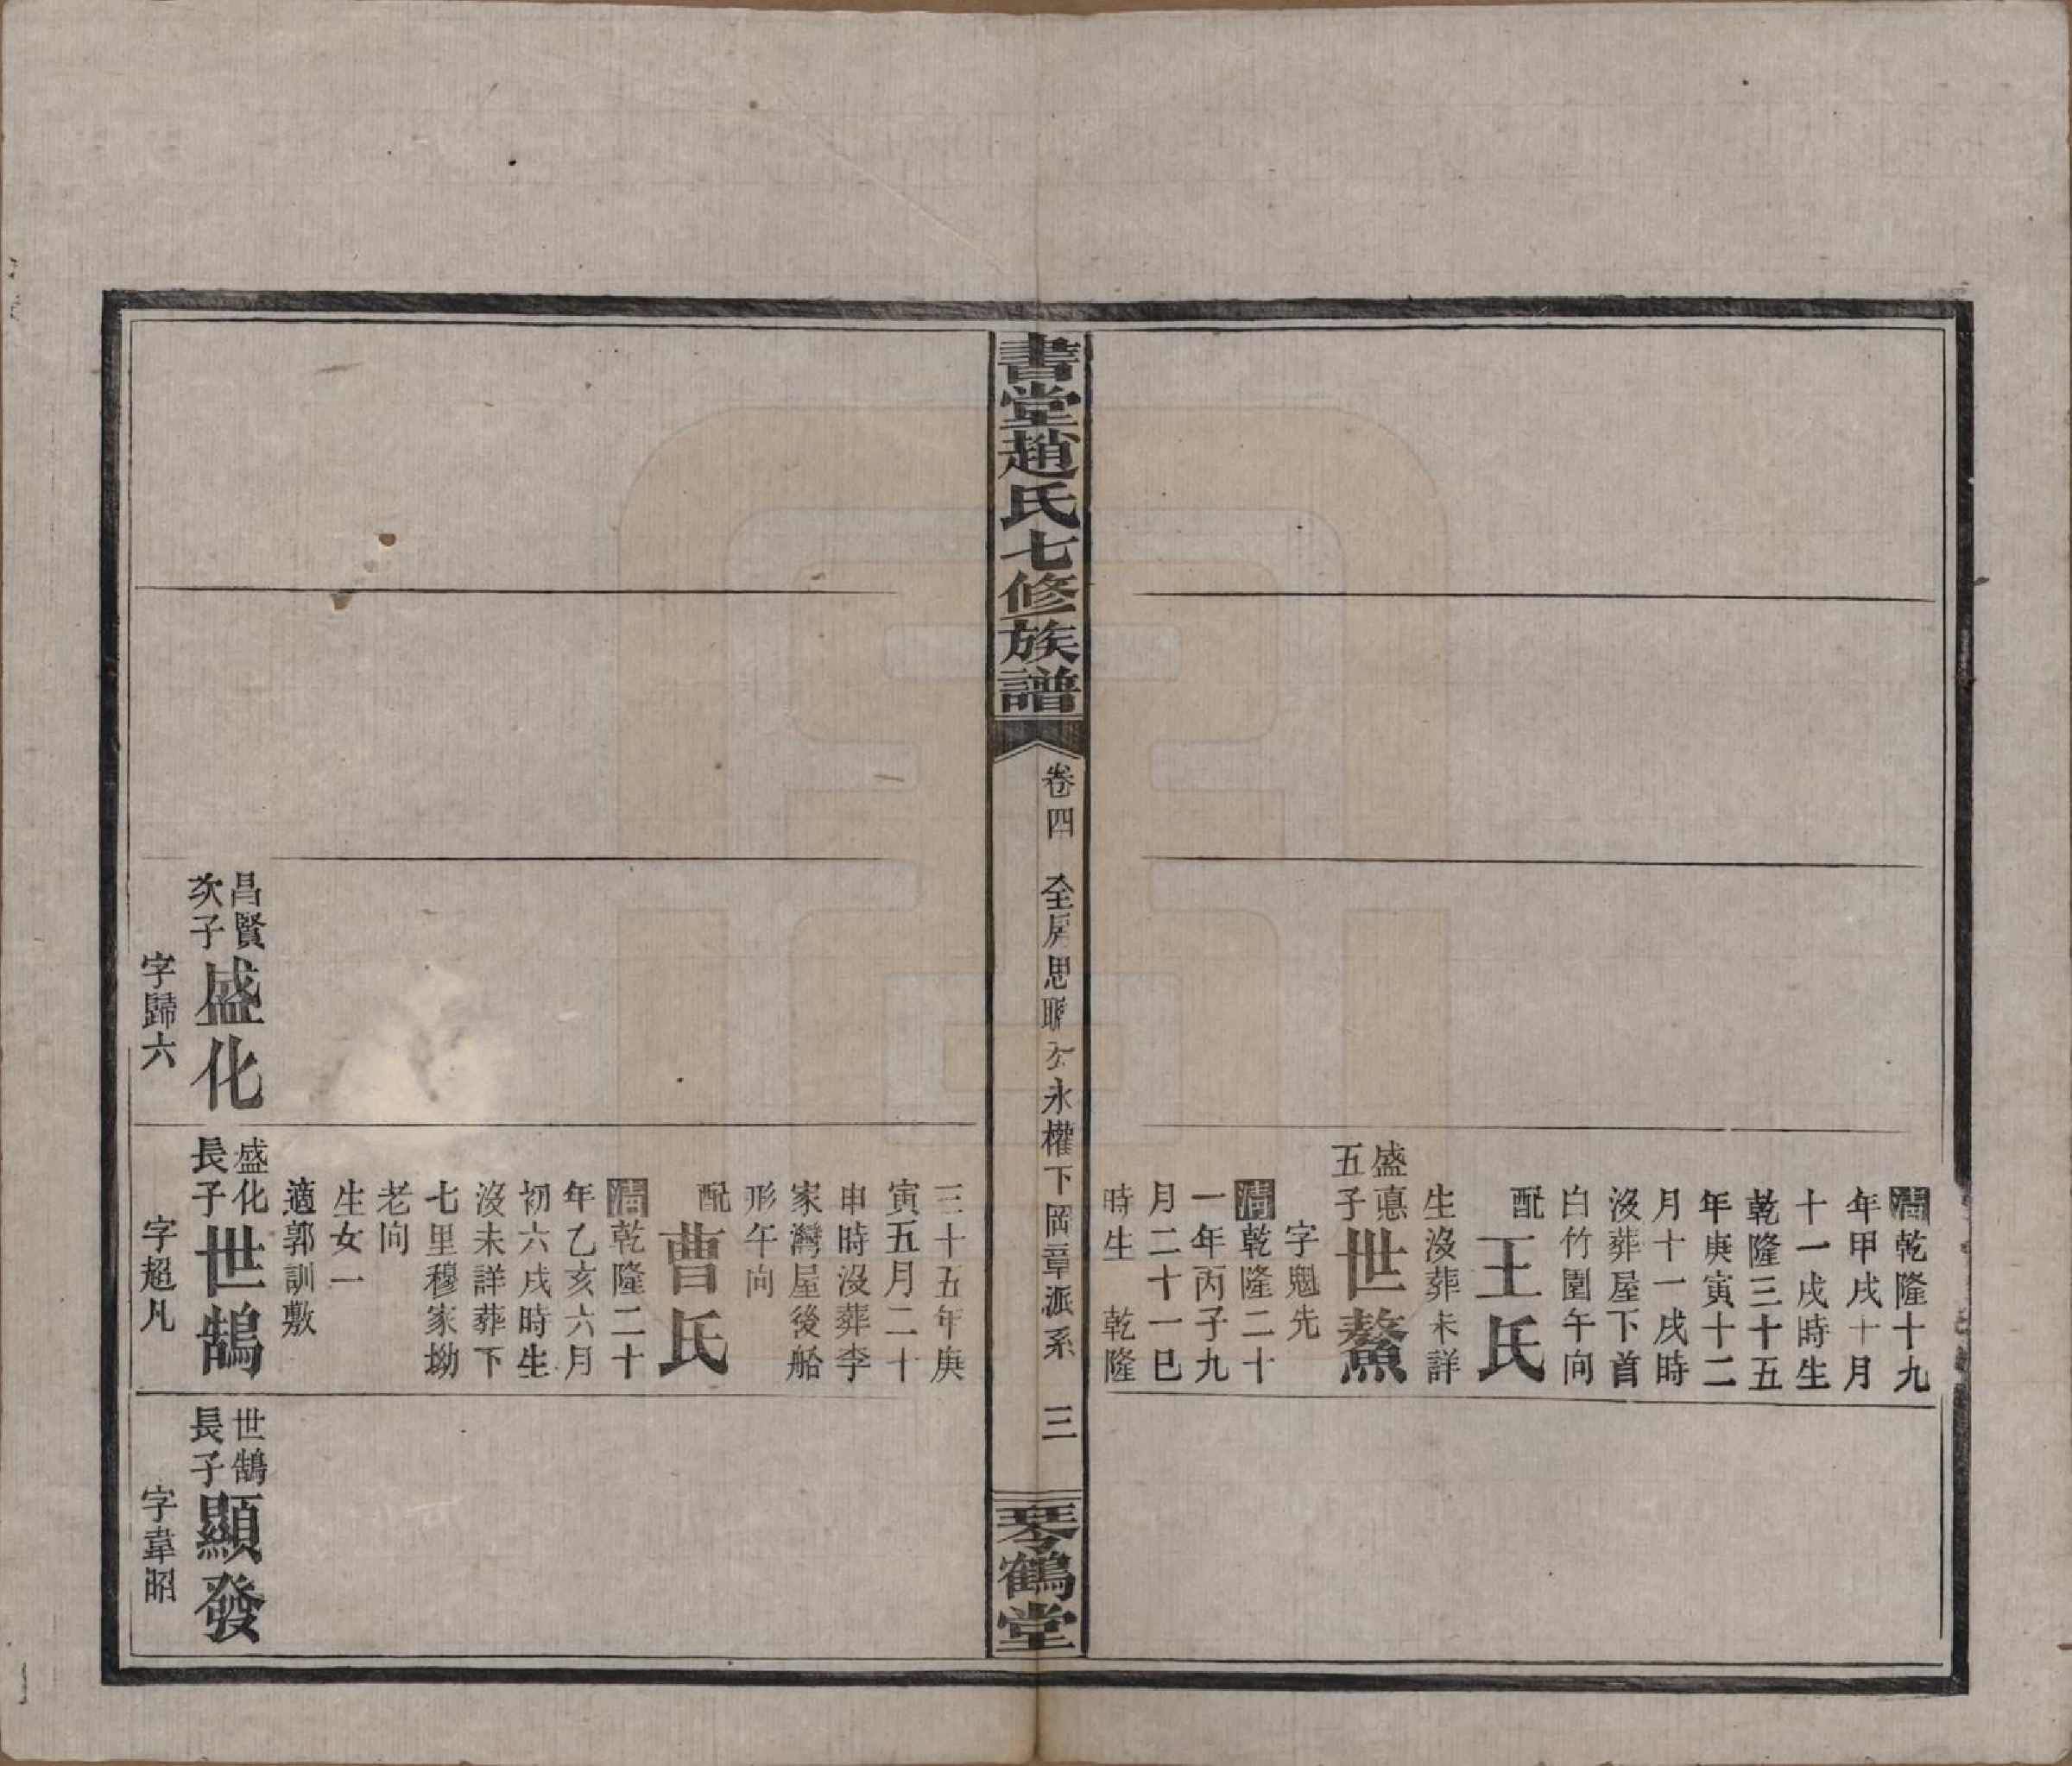 清乾隆十九
年甲戌十月
十一戌時生
乾隆三十五
年庚寅十二
月十一戌時
沒葬屋下首
白竹園午向
配王氏
生沒葬未詳
盛悳
五子
世鰲
字魁先
清乾隆二十
一年丙子九
月二十一巳
時生　乾隆
書堂趙氏七修族譜
卷四　全房思聰公永權下岡章派系　三
琴鶴堂
三十五年庚
寅五月二十
申時沒葬李
家灣屋後船
形午向
配曹氏
清乾隆二十
年乙亥六月
初六戌時生
沒未詳葬下
七里穆家坳
老向
生女一
適郭訓敷
昌賢
次子
盛化
字歸六
盛化
長子
世鵠
字超凡
世鵠
長子
顯發
字韋昭